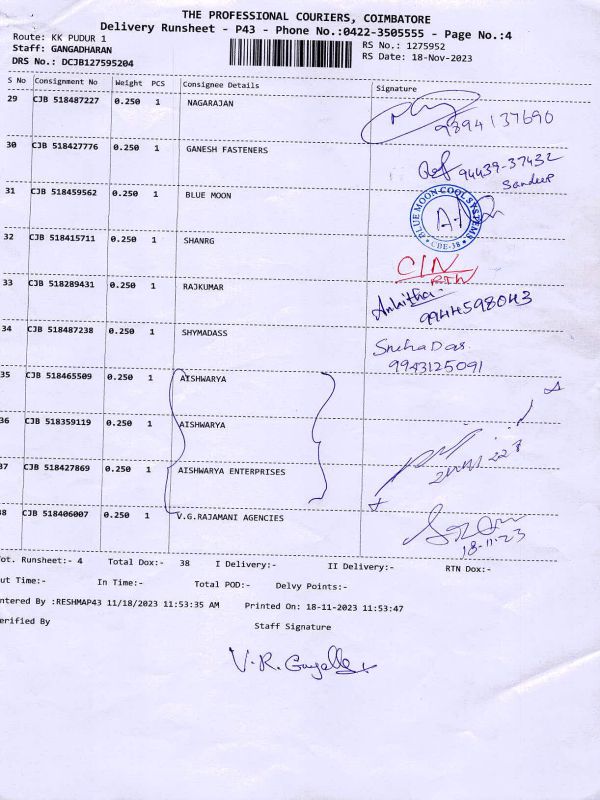 THE PROFESSIONAL COURIERS, COIMBATORE
Delivery Runsheet - P43 - Phone No.:0422-3505555 - Page No.:4
Route: KK PUDUR 1
RS No.: 1275952
Staff: GANGADHARAN
RS Date: 18-Nov-2023
DRS No.: DCJB127595204
S No Consignment No Weight PCS Consignee Details Signature
29 CJB 518487227 0.250 1 NAGARAJAN
9894137690
30 CJB 518427776 0.250 1 GANESH FASTENERS
94439-37432
Sandeep
31 CJB 518459562 0.250 1 BLUE MOON
BLUE MOON COOL SYSTEMS
CBE-38
32 CJB 518415711 0.250 1 SHANRG
CIN
RTN
33 CJB 518289431 0.250 1 RAJKUMAR
Ankitha
9944598043
34 CJB 518487238 0.250 1 SHYMADASS
Sneha Das.
9943125091
35 CJB 518465509 0.250 1 AISHWARYA
36 CJB 518359119 0.250 1 AISHWARYA
37 CJB 518427869 0.250 1 AISHWARYA ENTERPRISES
38 CJB 518406007 0.250 1 V.G.RAJAMANI AGENCIES
18-11-23
ot. Runsheet:- 4 Total Dox:- 38 I Delivery:- II Delivery:- RTN Dox:-
ut Time:- In Time:- Total POD:- Delvy Points:-
ntered By :RESHMAP43 11/18/2023 11:53:35 AM Printed On: 18-11-2023 11:53:47
erified By Staff Signature